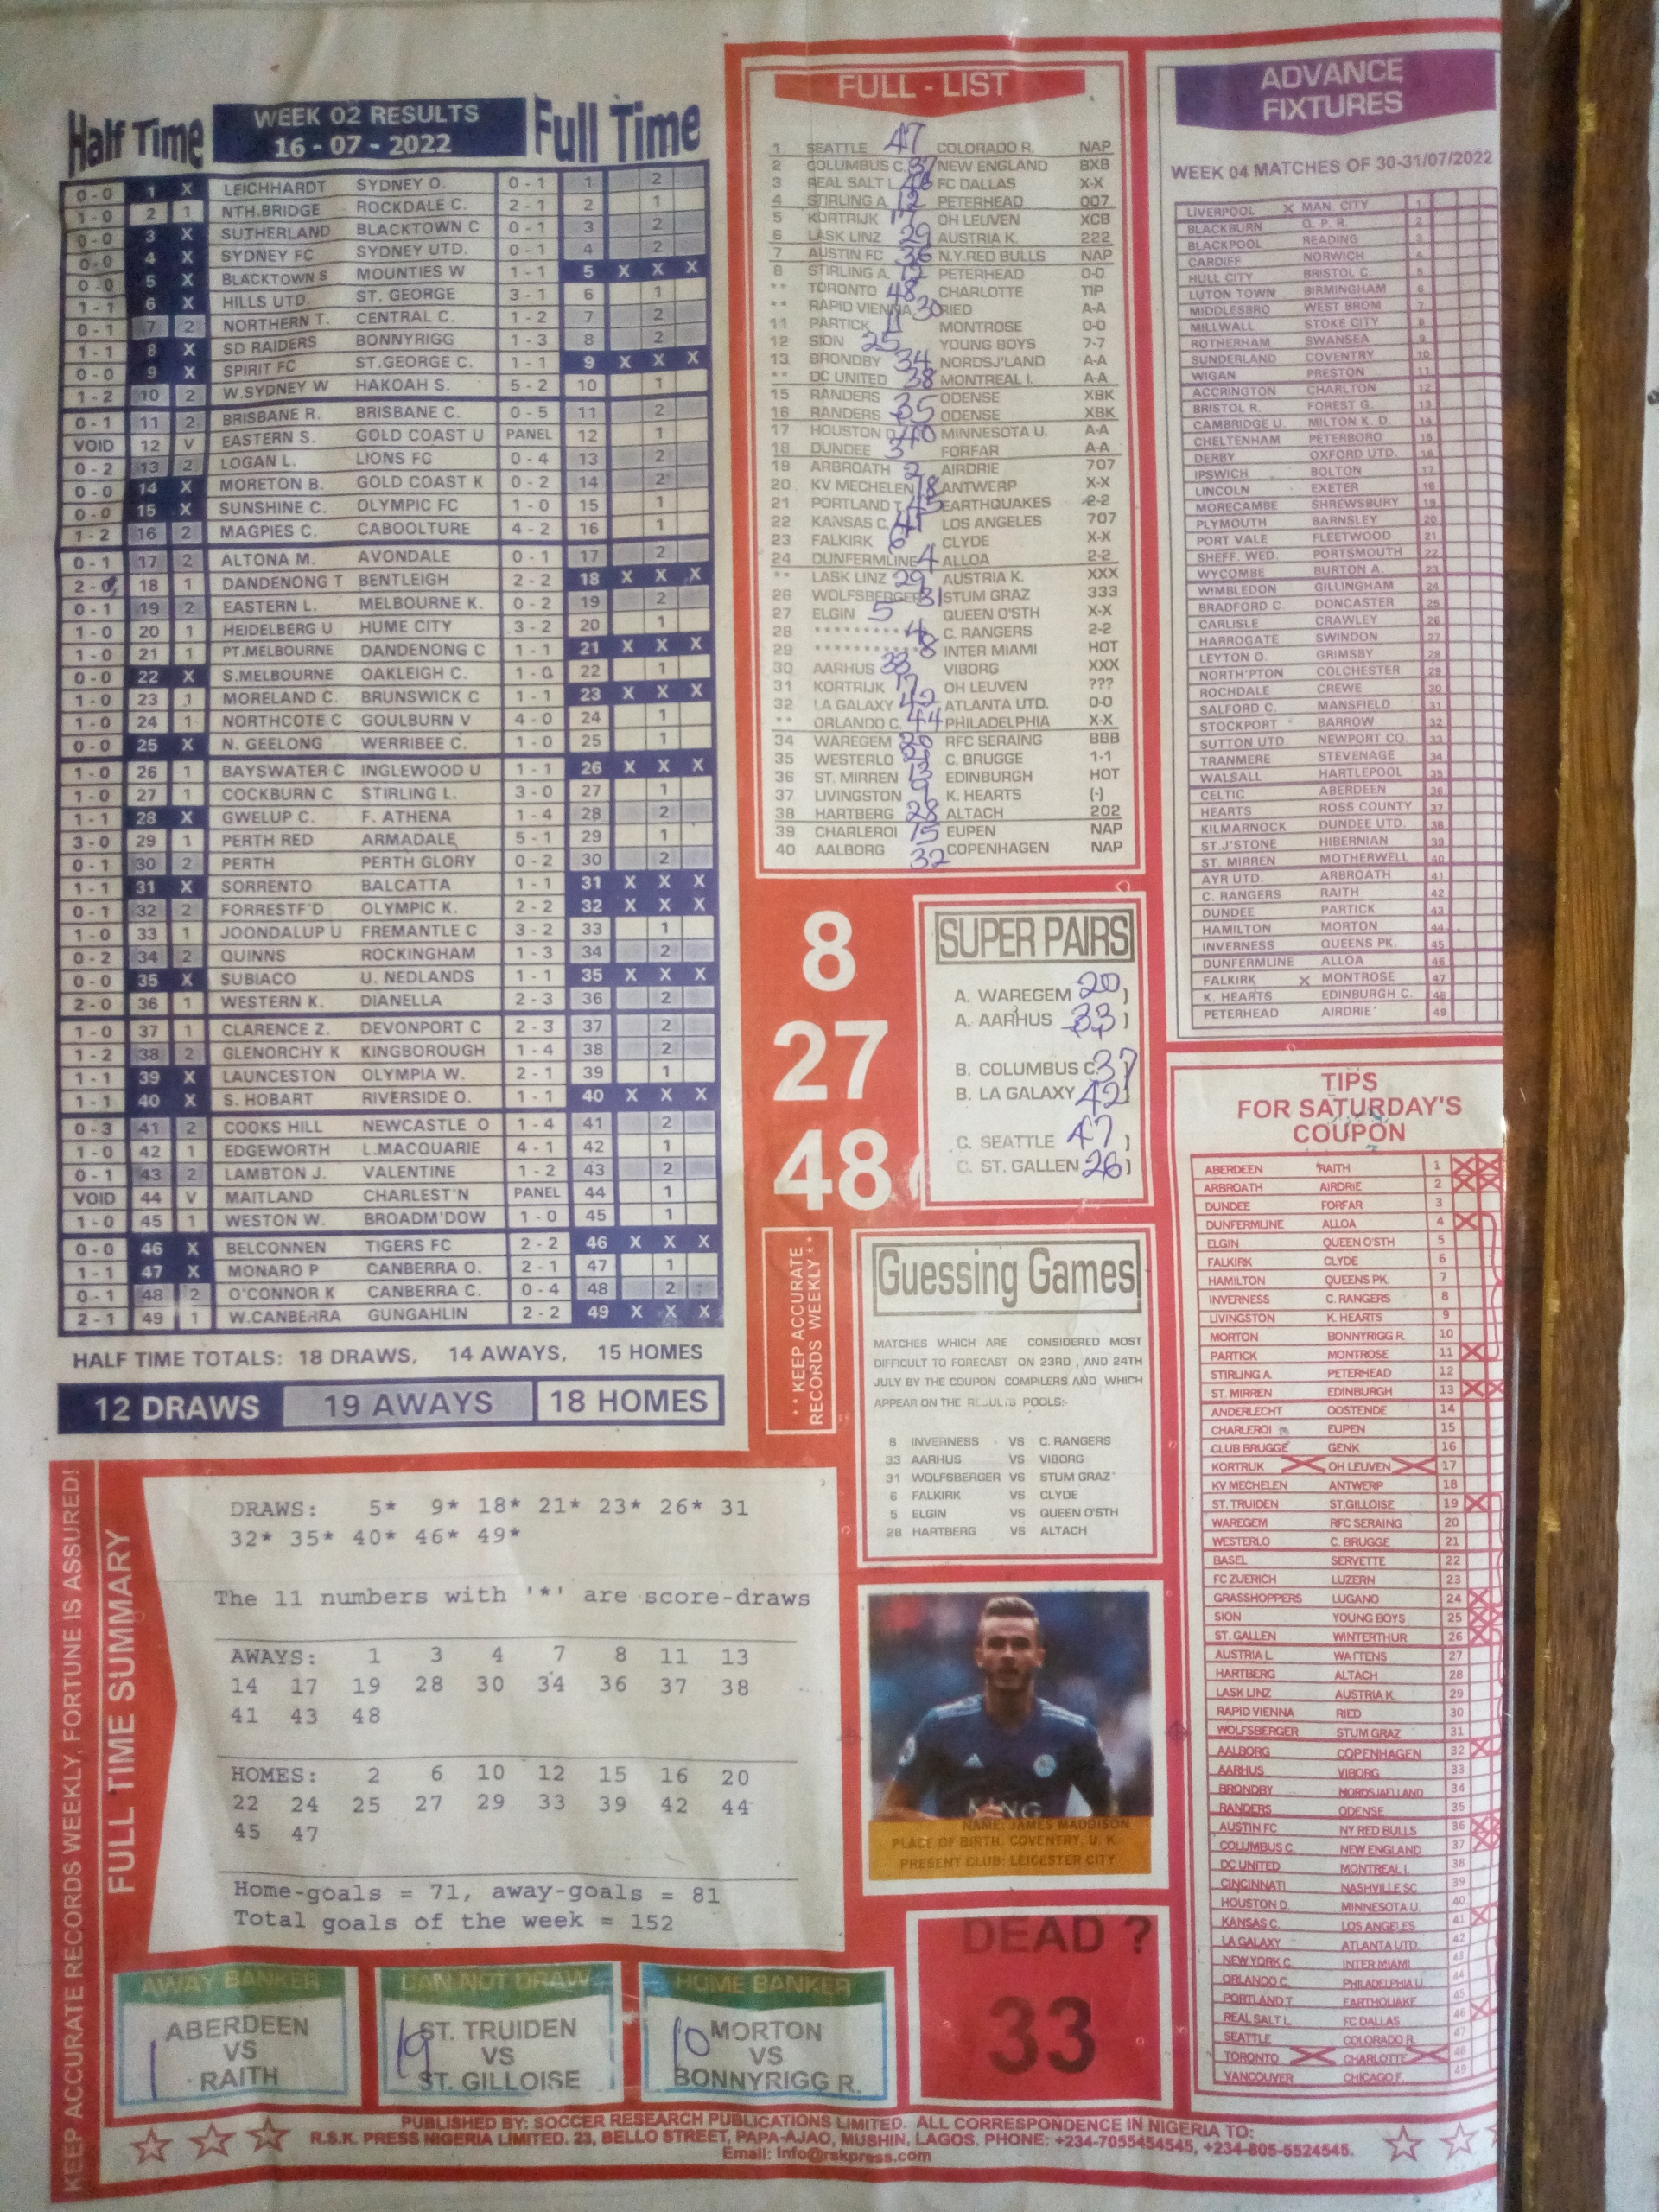 Half Time
WEEK 02 RESULTS
16 - 07 - 2022
Full Time
0-0 1 X LEICHHARDT SYDNEY O. 0-1 1 2
1-0 2 1 NTH.BRIDGE ROCKDALE C. 2-1 2 1
0-0 3 X SUTHERLAND BLACKTOWN C 0-1 3 2
0-0 4 X SYDNEY FC SYDNEY UTD. 0-1 4 2
0-0 5 X BLACKTOWN S MOUNTIES W 1-1 5 X X X
1-1 6 X HILLS UTD. ST. GEORGE 3-1 6 1
0-1 7 2 NORTHERN T. CENTRAL C. 1-2 7 2
1-1 8 X SD RAIDERS BONNYRIGG 1-3 8 2
0-0 9 X SPIRIT FC ST.GEORGE C. 1-1 9 X X X
1-2 10 2 W.SYDNEY W HAKOAH S. 5-2 10 1
0-1 11 2 BRISBANE R. BRISBANE C. 0-5 11 2
VOID 12 V EASTERN S. GOLD COAST U PANEL 12 1
0-2 13 2 LOGAN L. LIONS FC 0-4 13 2
0-0 14 X MORETON B. GOLD COAST K 0-2 14 2
0-0 15 X SUNSHINE C. OLYMPIC FC 1-0 15 1
1-2 16 2 MAGPIES C. CABOOLTURE 4-2 16 1
0-1 17 2 ALTONA M. AVONDALE 0-1 17 2
2-0 18 1 DANDENONG T BENTLEIGH 2-2 18 X X X
0-1 19 2 EASTERN L. MELBOURNE K. 0-2 19 2
1-0 20 1 HEIDELBERG U HUME CITY 3-2 20 1
1-0 21 1 PT.MELBOURNE DANDENONG C 1-1 21 X X X
0-0 22 X S.MELBOURNE OAKLEIGH C. 1-0 22 1
1-0 23 1 MORELAND C. BRUNSWICK C 1-1 23 X X X
1-0 24 1 NORTHCOTE C GOULBURN V 4-0 24 1
0-0 25 X N. GEELONG WERRIBEE C. 1-0 25 1
1-0 26 1 BAYSWATER C INGLEWOOD U 1-1 26 X X X
1-0 27 1 COCKBURN C STIRLING L. 3-0 27 1
1-1 28 X GWELUP C. F. ATHENA 1-4 28 2
3-0 29 1 PERTH RED ARMADALE 5-1 29 1
0-1 30 2 PERTH PERTH GLORY 0-2 30 2
1-1 31 X SORRENTO BALCATTA 1-1 31 X X X
0-1 32 2 FORRESTF'D OLYMPIC K. 2-2 32 X X X
1-0 33 1 JOONDALUP U FREMANTLE C 3-2 33 1
0-2 34 2 QUINNS ROCKINGHAM 1-3 34 2
0-0 35 X SUBIACO U. NEDLANDS 1-1 35 X X X
2-0 36 1 WESTERN K. DIANELLA 2-3 36 2
1-0 37 1 CLARENCE Z. DEVONPORT C 2-3 37 2
1-2 38 2 GLENORCHY K KINGBOROUGH 1-4 38 2
1-1 39 X LAUNCESTON OLYMPIA W. 2-1 39 1
1-1 40 X S. HOBART RIVERSIDE O. 1-1 40 X X X
0-3 41 2 COOKS HILL NEWCASTLE O 1-4 41 2
1-0 42 1 EDGEWORTH L.MACQUARIE 4-1 42 1
0-1 43 2 LAMBTON J. VALENTINE 1-2 43 2
VOID 44 V MAITLAND CHARLEST'N PANEL 44 1
1-0 45 1 WESTON W. BROADM'DOW 1-0 45 1
0-0 46 X BELCONNEN TIGERS FC 2-2 46 X X X
1-1 47 X MONARO P CANBERRA O. 2-1 47 1
0-1 48 2 O'CONNOR K CANBERRA C. 0-4 48 2
2-1 49 1 W.CANBERRA GUNGAHLIN 2-2 49 X X X
HALF TIME TOTALS: 18 DRAWS, 14 AWAYS, 15 HOMES
12 DRAWS 19 AWAYS 18 HOMES
FULL - LIST
1 SEATTLE 47 COLORADO R. NAP
2 COLUMBUS C. 37 NEW ENGLAND BXB
3 REAL SALT L. 46 FC DALLAS X-X
4 STIRLING A. 12 PETERHEAD 007
5 KORTRIJK 17 OH LEUVEN XCB
6 LASK LINZ 29 AUSTRIA K. 222
7 AUSTIN FC 36 N.Y.RED BULLS NAP
8 STIRLING A. 12 PETERHEAD 0-0
** TORONTO 48 CHARLOTTE TIP
** RAPID VIENNA 30 RIED A-A
11 PARTICK 11 MONTROSE 0-0
12 SION 25 YOUNG BOYS 7-7
13 BRONDBY 34 NORDSJ'LAND A-A
** DC UNITED 38 MONTREAL I. A-A
15 RANDERS ODENSE XBK
16 RANDERS 35 ODENSE XBK
17 HOUSTON D. 40 MINNESOTA U. A-A
18 DUNDEE 3 FORFAR A-A
19 ARBROATH 2 AIRDRIE 707
20 KV MECHELEN 18 ANTWERP X-X
21 PORTLAND T. 45 EARTHQUAKES 2-2
22 KANSAS C. 41 LOS ANGELES 707
23 FALKIRK 6 CLYDE X-X
24 DUNFERMLINE 4 ALLOA 2-2
** LASK LINZ 29 AUSTRIA K. XXX
26 WOLFSBERGER 31 STUM GRAZ 333
27 ELGIN 5 QUEEN O'STH X-X
28 ********* C. RANGERS 2-2
29 ********* INTER MIAMI HOT
30 AARHUS 33 VIBORG XXX
31 KORTRIJK 17 OH LEUVEN ???
32 LA GALAXY 42 ATLANTA UTD. 0-0
** ORLANDO C. 44 PHILADELPHIA X-X
34 WAREGEM 20 RFC SERAING BBB
35 WESTERLO 21 C. BRUGGE 1-1
36 ST. MIRREN 13 EDINBURGH HOT
37 LIVINGSTON 9 K. HEARTS (-)
38 HARTBERG 28 ALTACH 202
39 CHARLEROI 15 EUPEN NAP
40 AALBORG 32 COPENHAGEN NAP
8
27
48
SUPER PAIRS
A. WAREGEM 20 )
A. AARHUS 33 )
B. COLUMBUS C. 37 )
B. LA GALAXY 42 )
C. SEATTLE 47 )
C. ST. GALLEN 26 )
** KEEP ACCURATE
RECORDS WEEKLY **
Guessing Games
MATCHES WHICH ARE CONSIDERED MOST
DIFFICULT TO FORECAST ON 23RD, AND 24TH
JULY BY THE COUPON COMPILERS AND WHICH
APPEAR ON THE RESULTS POOLS:-
8 INVERNESS - VS C. RANGERS
33 AARHUS VS VIBORG
31 WOLFSBERGER VS STUM GRAZ
6 FALKIRK VS CLYDE
5 ELGIN VS QUEEN O'STH
28 HARTBERG VS ALTACH
KING
NAME: JAMES MADDISON
PLACE OF BIRTH: COVENTRY, U. K.
PRESENT CLUB: LEICESTER CITY
DEAD ?
33
ADVANCE
FIXTURES
WEEK 04 MATCHES OF 30-31/07/2022
LIVERPOOL X MAN. CITY 1
BLACKBURN Q. P. R. 2
BLACKPOOL READING 3
CARDIFF NORWICH 4
HULL CITY BRISTOL C. 5
LUTON TOWN BIRMINGHAM 6
MIDDLESBRO WEST BROM 7
MILLWALL STOKE CITY 8
ROTHERHAM SWANSEA 9
SUNDERLAND COVENTRY 10
WIGAN PRESTON 11
ACCRINGTON CHARLTON 12
BRISTOL R. FOREST G. 13
CAMBRIDGE U. MILTON K. D. 14
CHELTENHAM PETERBORO 15
DERBY OXFORD UTD. 16
IPSWICH BOLTON 17
LINCOLN EXETER 18
MORECAMBE SHREWSBURY 19
PLYMOUTH BARNSLEY 20
PORT VALE FLEETWOOD 21
SHEFF. WED. PORTSMOUTH 22
WYCOMBE BURTON A. 23
WIMBLEDON GILLINGHAM 24
BRADFORD C. DONCASTER 25
CARLISLE CRAWLEY 26
HARROGATE SWINDON 27
LEYTON O. GRIMSBY 28
NORTH'PTON COLCHESTER 29
ROCHDALE CREWE 30
SALFORD C. MANSFIELD 31
STOCKPORT BARROW 32
SUTTON UTD. NEWPORT CO. 33
TRANMERE STEVENAGE 34
WALSALL HARTLEPOOL 35
CELTIC ABERDEEN 36
HEARTS ROSS COUNTY 37
KILMARNOCK DUNDEE UTD. 38
ST.J'STONE HIBERNIAN 39
ST. MIRREN MOTHERWELL 40
AYR UTD. ARBROATH 41
C. RANGERS RAITH 42
DUNDEE PARTICK 43
HAMILTON MORTON 44
INVERNESS QUEENS PK. 45
DUNFERMLINE ALLOA 46
FALKIRK X MONTROSE 47
K. HEARTS EDINBURGH C. 48
PETERHEAD AIRDRIE 49
TIPS
FOR SATURDAY'S
COUPON
ABERDEEN RAITH 1
ARBROATH AIRDRIE 2
DUNDEE FORFAR 3
DUNFERMLINE ALLOA 4
ELGIN QUEEN O'STH 5
FALKIRK CLYDE 6
HAMILTON QUEENS PK. 7
INVERNESS C. RANGERS 8
LIVINGSTON K. HEARTS 9
MORTON BONNYRIGG R. 10
PARTICK MONTROSE 11
STIRLING A. PETERHEAD 12
ST. MIRREN EDINBURGH 13
ANDERLECHT OOSTENDE 14
CHARLEROI EUPEN 15
CLUB BRUGGE GENK 16
KORTRIJK OH LEUVEN 17
KV MECHELEN ANTWERP 18
ST. TRUIDEN ST.GILLOISE 19
WAREGEM RFC SERAING 20
WESTERLO C. BRUGGE 21
BASEL SERVETTE 22
FC ZUERICH LUZERN 23
GRASSHOPPERS LUGANO 24
SION YOUNG BOYS 25
ST. GALLEN WINTERTHUR 26
AUSTRIA L. WATTENS 27
HARTBERG ALTACH 28
LASK LINZ AUSTRIA K. 29
RAPID VIENNA RIED 30
WOLFSBERGER STUM GRAZ 31
AALBORG COPENHAGEN 32
AARHUS VIBORG 33
BRONDBY NORDSJAELLAND 34
RANDERS ODENSE 35
AUSTIN FC NY RED BULLS 36
COLUMBUS C. NEW ENGLAND 37
DC UNITED MONTREAL I. 38
CINCINNATI NASHVILLE SC 39
HOUSTON D. MINNESOTA U. 40
KANSAS C. LOS ANGELES 41
LA GALAXY ATLANTA UTD. 42
NEW YORK C. INTER MIAMI 43
ORLANDO C. PHILADELPHIA U. 44
PORTLAND T. EARTHQUAKE 45
REAL SALT L. FC DALLAS 46
SEATTLE COLORADO R. 47
TORONTO CHARLOTTE 48
VANCOUVER CHICAGO F. 49
KEEP ACCURATE RECORDS WEEKLY, FORTUNE IS ASSURED!
FULL TIME SUMMARY
DRAWS: 5* 9* 18* 21* 23* 26* 31
32* 35* 40* 46* 49*
The 11 numbers with '*' are score-draws
AWAYS: 1 3 4 7 8 11 13
14 17 19 28 30 34 36 37 38
41 43 48
HOMES: 2 6 10 12 15 16 20
22 24 25 27 29 33 39 42 44
45 47
Home-goals = 71, away-goals = 81
Total goals of the week = 152
AWAY BANKER
ABERDEEN
VS
1 RAITH
CAN NOT DRAW
ST. TRUIDEN
19 VS
ST. GILLOISE
HOME BANKER
MORTON
10 VS
BONNYRIGG R.
PUBLISHED BY: SOCCER RESEARCH PUBLICATIONS LIMITED. ALL CORRESPONDENCE IN NIGERIA TO:
R.S.K. PRESS NIGERIA LIMITED. 23, BELLO STREET, PAPA-AJAO, MUSHIN, LAGOS. PHONE: +234-7055454545, +234-805-5524545.
Email: Info@rskpress.com